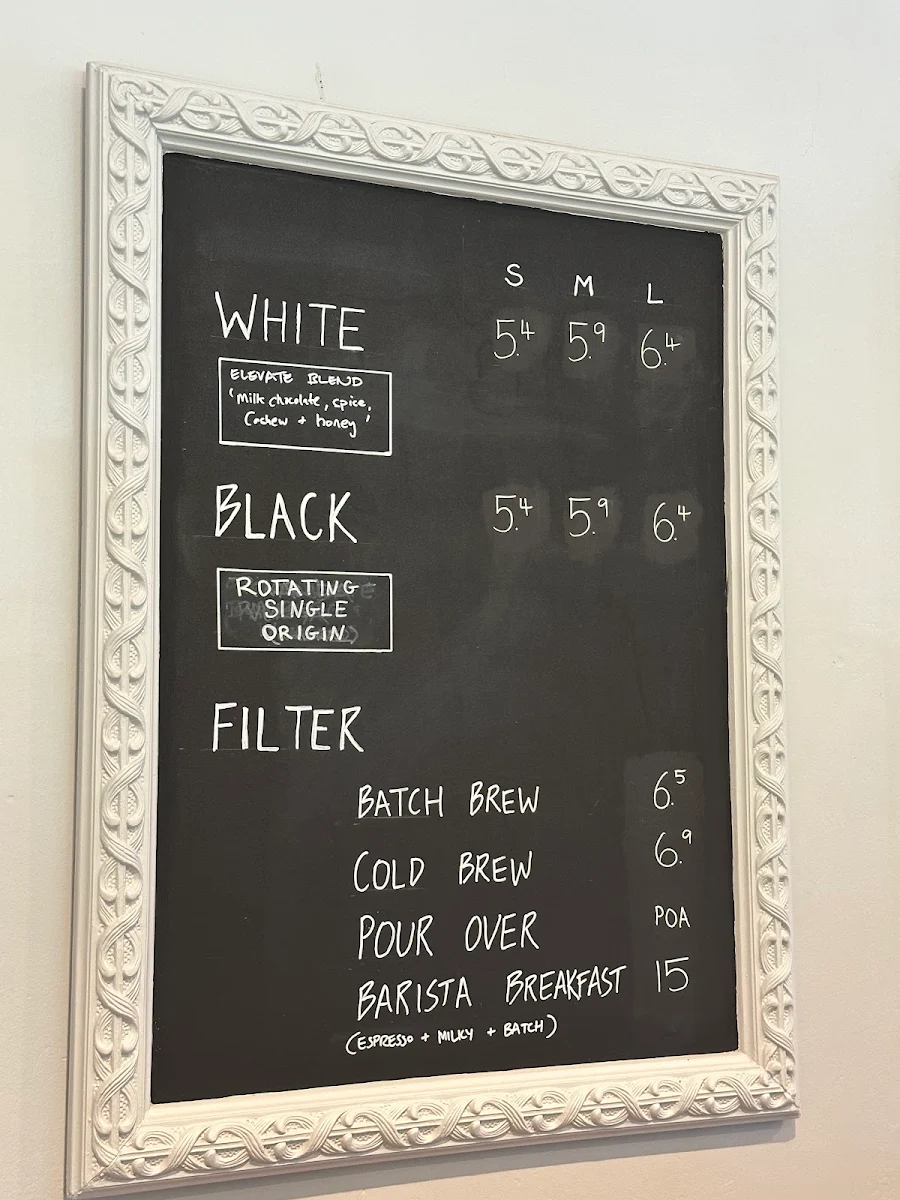 S M L
WHITE 5.4 5.9 6.4
ELEVATE BLEND
'Milk chocolate, spice,
Cashew + honey'
BLACK 5.4 5.9 6.4
ROTATING
SINGLE
ORIGIN
FILTER
BATCH BREW 6.5
COLD BREW 6.9
POUR OVER POA
BARISTA BREAKFAST 15
(ESPRESSO + MILKY + BATCH)